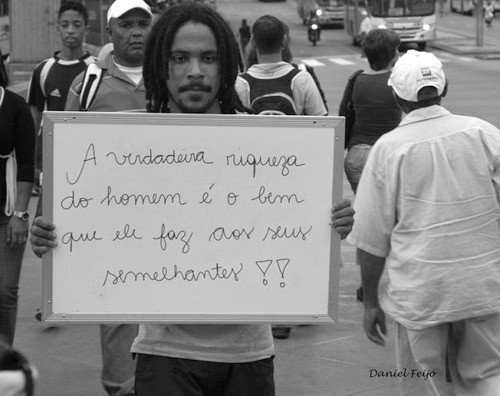 A verdadeira riqueza
do homem é o bem
que ele faz aos seus
semelhantes !!
Daniel Feijo